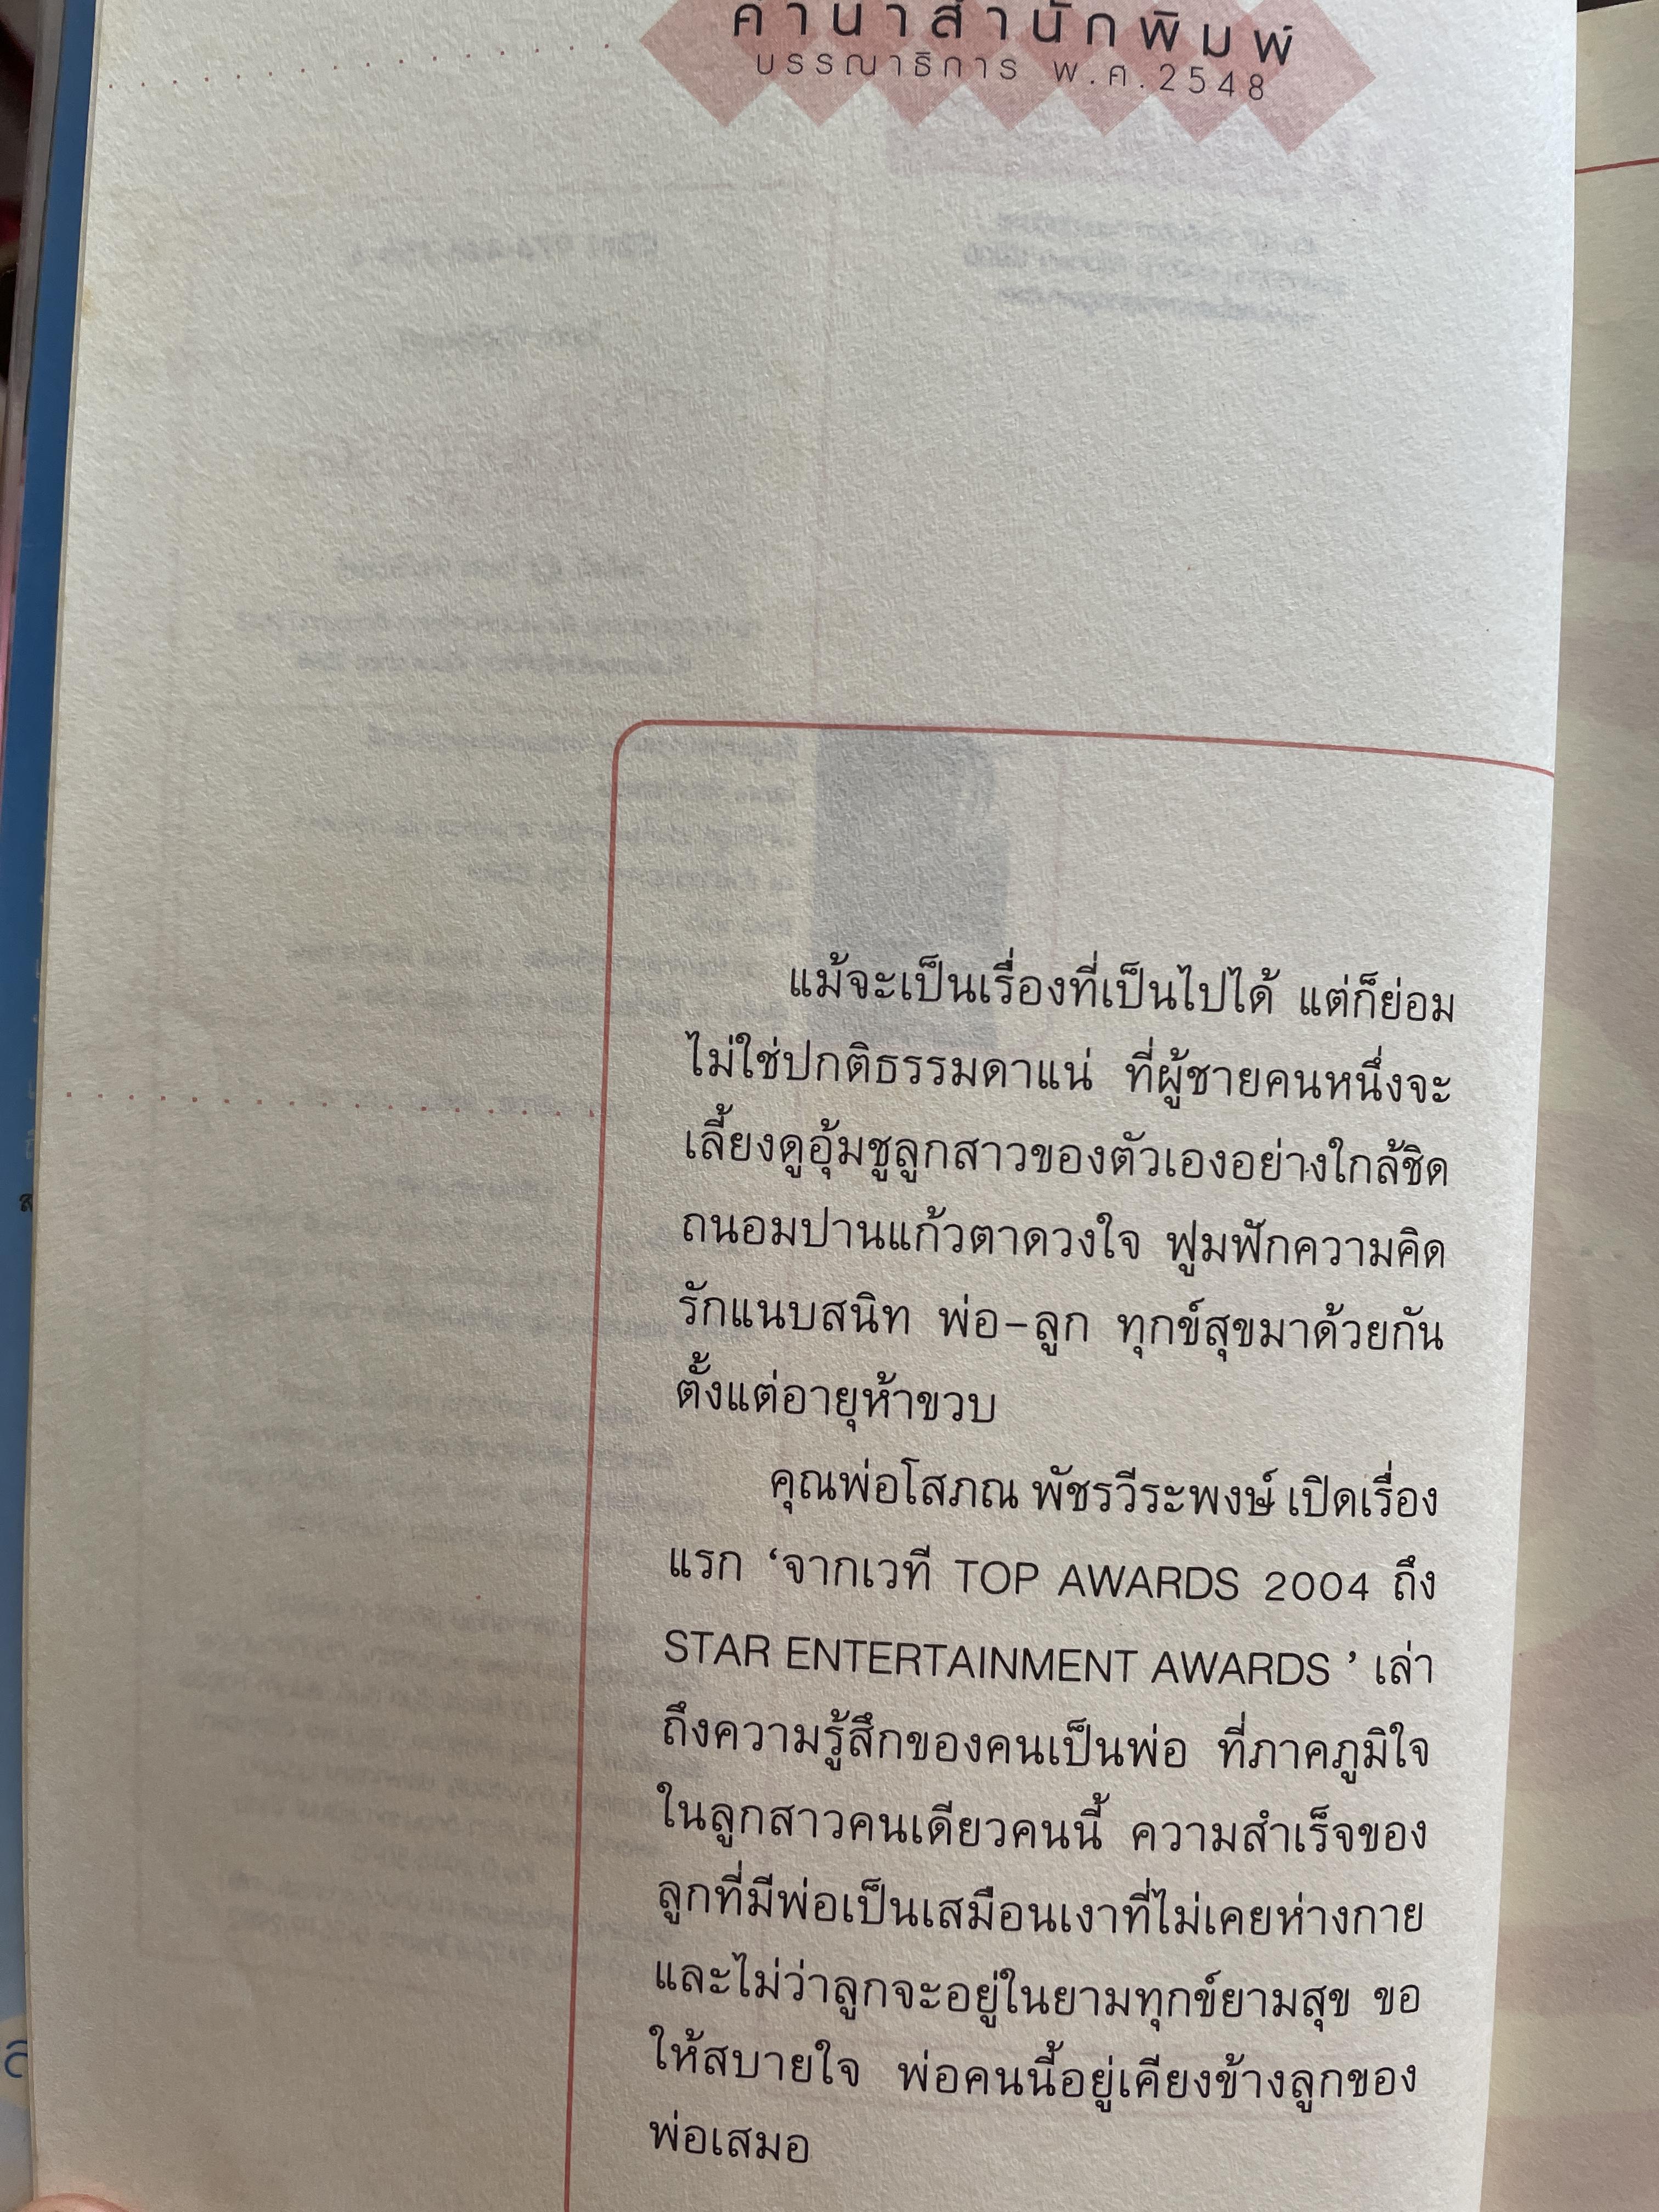 คำนำสำนักพิมพ์
บรรณาธิการ พ.ศ.2548
แม้จะเป็นเรื่องที่เป็นไปได้ แต่ก็ย่อม
ไม่ใช่ปกติธรรมดาแน่ ที่ผู้ชายคนหนึ่งจะ
เลี้ยงดูอุ้มชูลูกสาวของตัวเองอย่างใกล้ชิด
ถนอมปานแก้วตาดวงใจ ฟูมฟักความคิด
รักแนบสนิท พ่อ-ลูก ทุกข์สุขมาด้วยกัน
ตั้งแต่อายุห้าขวบ
คุณพ่อโสภณ พัชรวีระพงษ์ เปิดเรื่อง
แรก ‘จากเวที TOP AWARDS 2004 ถึง
STAR ENTERTAINMENT AWARDS ’ เล่า
ถึงความรู้สึกของคนเป็นพ่อ ที่ภาคภูมิใจ
ในลูกสาวคนเดียวคนนี้ ความสำเร็จของ
ลูกที่มีพ่อเป็นเสมือนเงาที่ไม่เคยห่างกาย
และไม่ว่าลูกจะอยู่ในยามทุกข์ยามสุข ขอ
ให้สบายใจ พ่อคนนี้อยู่เคียงข้างลูกของ
พ่อเสมอ